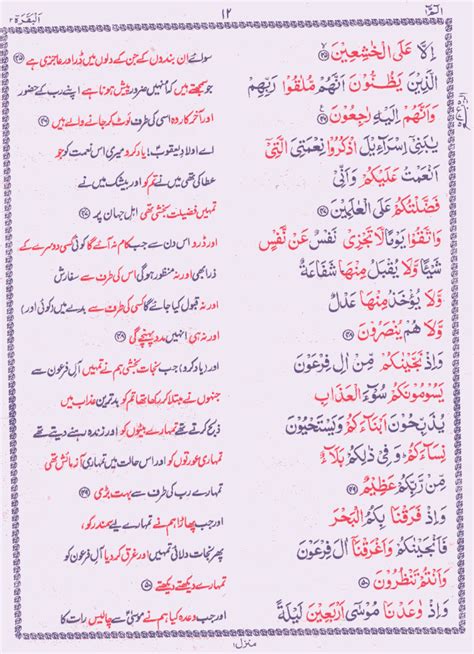 الٓمّٓ ۱
۱۲
اَلْبَقَرَة ۲
اِلَّا عَلَی الْخٰشِعِیْنَ ۴۵
الَّذِیْنَ یَظُنُّوْنَ اَنَّهُمْ مُّلٰقُوْا رَبِّهِمْ
وَاَنَّهُمْ اِلَیْهِ رٰجِعُوْنَ ۴۶
یٰبَنِیْۤ اِسْرَآءِیْلَ اذْکُرُوْا نِعْمَتِیَ الَّتِیْۤ
اَنْعَمْتُ عَلَیْکُمْ وَاَنِّیْ
فَضَّلْتُکُمْ عَلَی الْعٰلَمِیْنَ ۴۷
وَاتَّقُوْا یَوْمًا لَّا تَجْزِیْ نَفْسٌ عَنْ نَّفْسٍ
شَیْئًا وَّلَا یُقْبَلُ مِنْهَا شَفَاعَةٌ
وَّلَا یُؤْخَذُ مِنْهَا عَدْلٌ
وَّلَا هُمْ یُنْصَرُوْنَ ۴۸
وَاِذْ نَجَّیْنٰکُمْ مِّنْ اٰلِ فِرْعَوْنَ
یَسُوْمُوْنَکُمْ سُوْٓءَ الْعَذَابِ
یُذَبِّحُوْنَ اَبْنَآءَکُمْ وَیَسْتَحْیُوْنَ
نِسَآءَکُمْ وَفِیْ ذٰلِکُمْ بَلَآءٌ
مِّنْ رَّبِّکُمْ عَظِیْمٌ ۴۹
وَاِذْ فَرَقْنَا بِکُمُ الْبَحْرَ
فَاَنْجَیْنٰکُمْ وَاَغْرَقْنَاۤ اٰلَ فِرْعَوْنَ
وَاَنْتُمْ تَنْظُرُوْنَ ۵۰
وَاِذْ وٰعَدْنَا مُوْسٰۤی اَرْبَعِیْنَ لَیْلَةً
سوائے ان بندوں کے جن کے دلوں میں ڈر اور عاجزی ہے ۴۵
جو سمجھتے ہیں کہ انہیں ضرور پیش ہونا ہے اپنے رب کے حضور
اور آخر کار وہ اسی کی طرف لوٹ کر جانے والے ہیں ۴۶
اے اولادِ یعقوب! یاد کرو میری اس نعمت کو جو
عطا کی تھی میں نے تم کو اور بیشک میں نے
تمہیں فضیلت بخشی تھی اہلِ جہان پر ۴۷
اور ڈرو اس دن سے جب کام نہ آئے گا کوئی کسی دوسرے کے
ذرا بھی اور نہ منظور ہوگی اس کی طرف سے سفارش
اور نہ قبول کیا جائے گا کسی کی طرف سے بدلے میں (کوئی اور)
اور نہ ہی انہیں مدد پہنچے گی ۴۸
اور (یاد کرو) جب نجات بخشی ہم نے تمہیں آلِ فرعون سے
جنہوں نے مبتلا کر رکھا تھا تم کو بدترین عذاب میں
ذبح کرتے تھے تمہارے بیٹوں کو اور زندہ رہنے دیتے تھے
تمہاری عورتوں کو اور اس حالت میں تمہاری آزمائش تھی
تمہارے رب کی طرف سے بہت بڑی ۴۹
اور جب پھاڑا ہم نے تمہارے لیے سمندر کو،
پھر نجات دلائی تمہیں اور غرق کر دیا آلِ فرعون کو
تمہارے دیکھتے دیکھتے ۵۰
اور جب وعدہ کیا ہم نے موسیٰ سے چالیس رات کا
منزل ۱